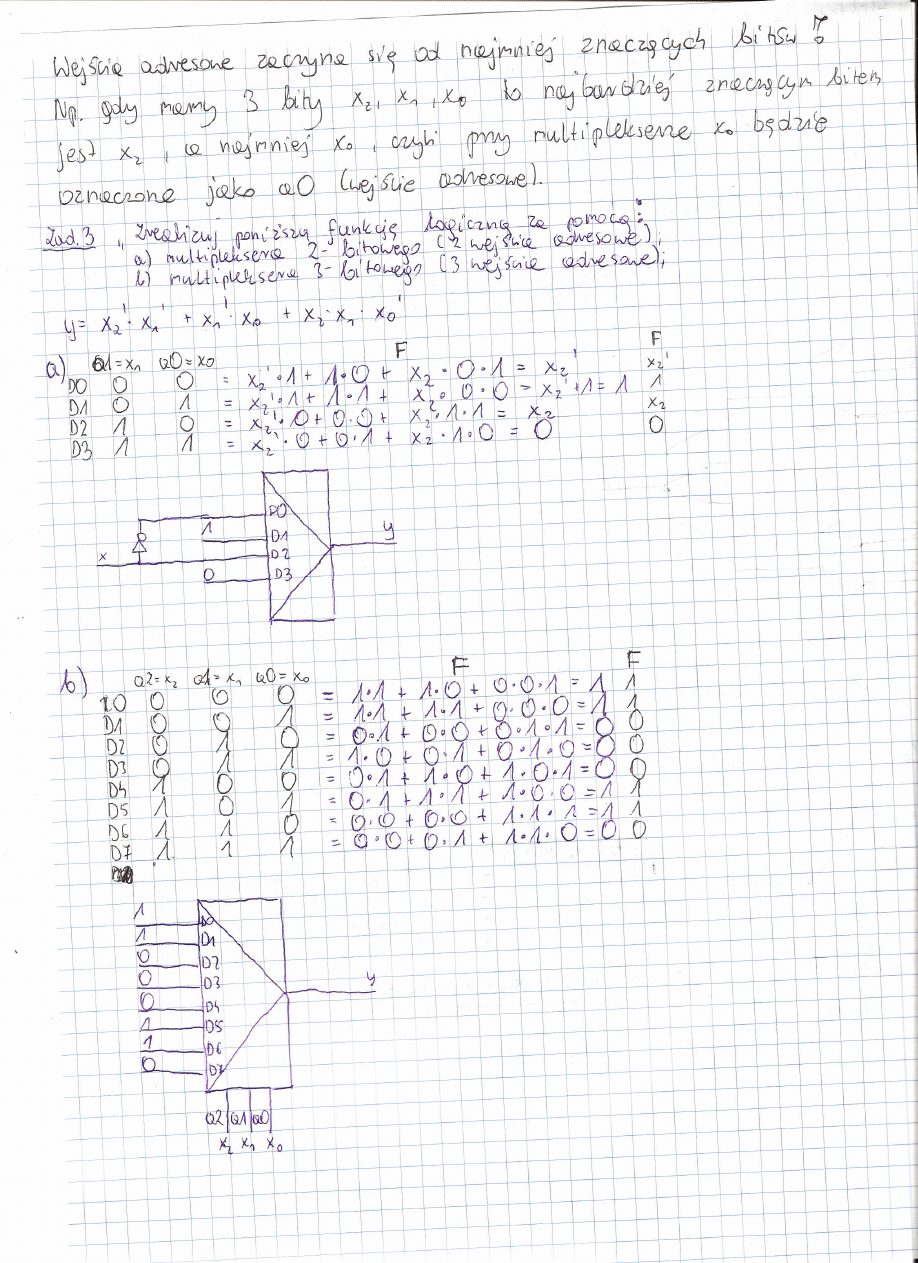 Wejścia adresowe zaczyna się od najmniej znaczących bitów !
Np. gdy mamy 3 bity x₂, x₁, x₀ to najbardziej znaczącym bitem
jest x₂, a najmniej x₀, czyli przy multiplekserze x₀ będzie
oznaczone jako a0 (wejście adresowe).
Zad.3 „Zrealizuj poniższą funkcję logiczną za pomocą:
a) multipleksera 2-bitowego (2 wejścia adresowe);
b) multipleksera 3-bitowego (3 wejścia adresowe);
y= x₂'·x₁' + x₁'·x₀ + x₂·x₁·x₀'
F F
a) a1=x₁ a0=x₀
D0 0 0 = x₂'·1 + 1·0 + x₂·0·1 = x₂' x₂'
D1 0 1 = x₂'·1 + 1·1 + x₂·0·0 = x₂'+1 = 1 1
D2 1 0 = x₂'·0 + 0·0 + x₂·1·1 = x₂ x₂
D3 1 1 = x₂'·0 + 0·1 + x₂·1·0 = 0 0
D0
1 D1 y
x D2
0 D3
F F
b) a2=x₂ a1=x₁ a0=x₀
D0 0 0 0 = 1·1 + 1·0 + 0·0·1 = 1 1
D1 0 0 1 = 1·1 + 1·1 + 0·0·0 = 1 1
D2 0 1 0 = 0·1 + 0·0 + 0·1·1 = 0 0
D3 0 1 1 = 1·0 + 0·1 + 0·1·0 = 0 0
D4 1 0 0 = 0·1 + 1·0 + 1·0·1 = 0 0
D5 1 0 1 = 0·1 + 1·1 + 1·0·0 = 1 1
D6 1 1 0 = 0·0 + 0·0 + 1·1·1 = 1 1
D7 1 1 1 = 0·0 + 0·1 + 1·1·0 = 0 0
1 D0
1 D1
0 D2
0 D3 y
0 D4
1 D5
1 D6
0 D7
a2 a1 a0
x₂ x₁ x₀